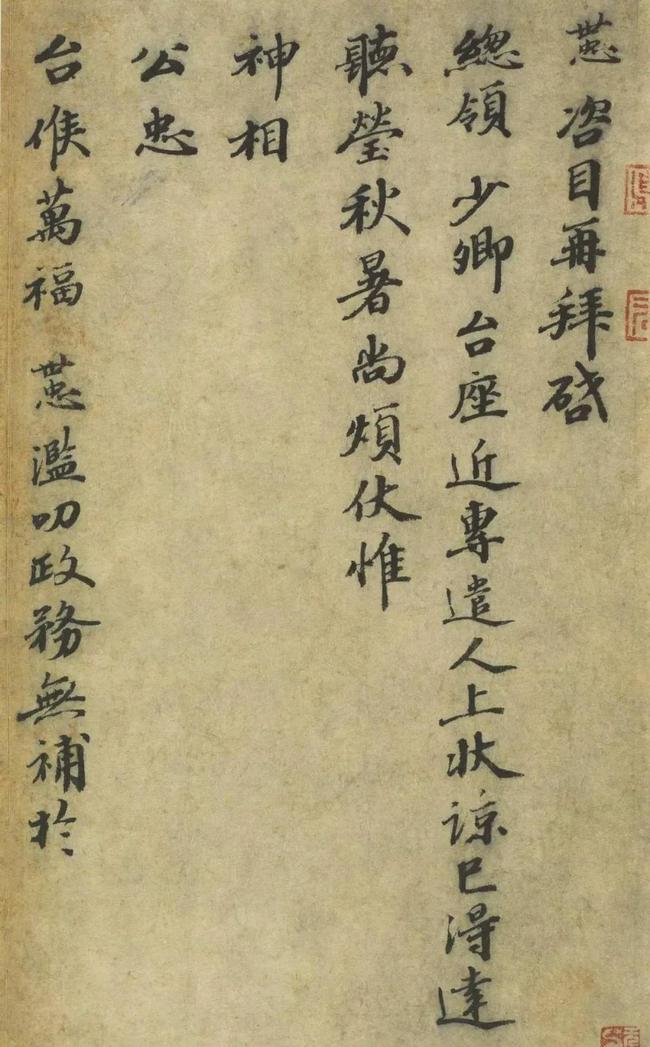 咨目再拜啓
總領少卿台座近專遣人上狀諒已得達
聽瑩秋暑尚煩伏惟
神相
公忠
台候萬福 濫叨政務無補於